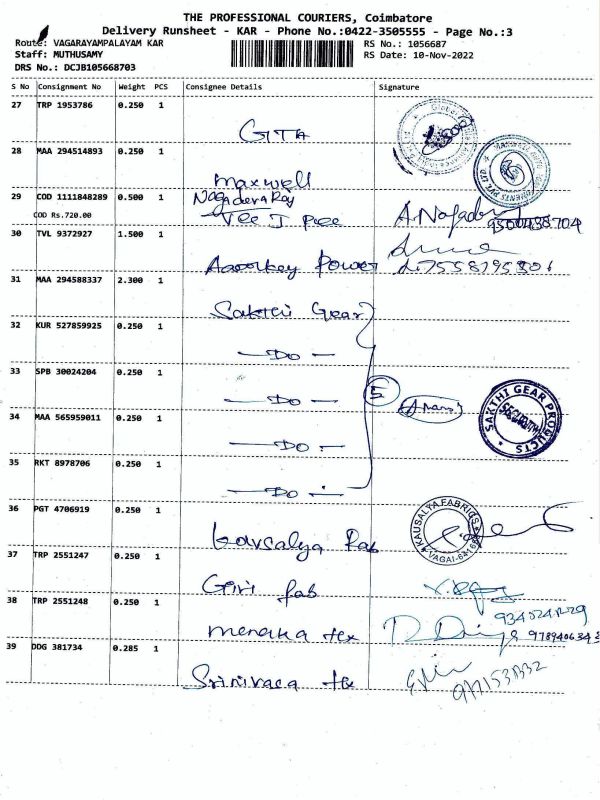 THE PROFESSIONAL COURIERS, Coimbatore
Delivery Runsheet - KAR - Phone No.:0422-3505555 - Page No.:3
Route: VAGARAYAMPALAYAM KAR
RS No.: 1056687
Staff: MUTHUSAMY
RS Date: 10-Nov-2022
DRS No.: DCJB105668703
S No Consignment No Weight PCS Consignee Details Signature
27 TRP 1953786 0.250 1
GITA
28 MAA 294514893 0.250 1
Maxwell
29 COD 1111848289 0.500 1 Nagadevaraj
COD Rs.720.00 Vee J Pee
30 TVL 9372927 1.500 1
Power
31 MAA 294588337 2.300 1
Sakthi Gear
32 KUR 527859925 0.250 1
— Do —
33 SPB 30024204 0.250 1
— Do — 5
34 MAA 565959011 0.250 1
SAKTHI GEAR PRODUCTS
SECURITY
— Do —
35 RKT 8978706 0.250 1
— Do —
36 PGT 4706919 0.250 1
KAUSALYA FABRICS
Kavsalya Fab
37 TRP 2551247 0.250 1
Giri fab
38 TRP 2551248 0.250 1
Menaka tex
39 DDG 381734 0.285 1
Srinivasa tex